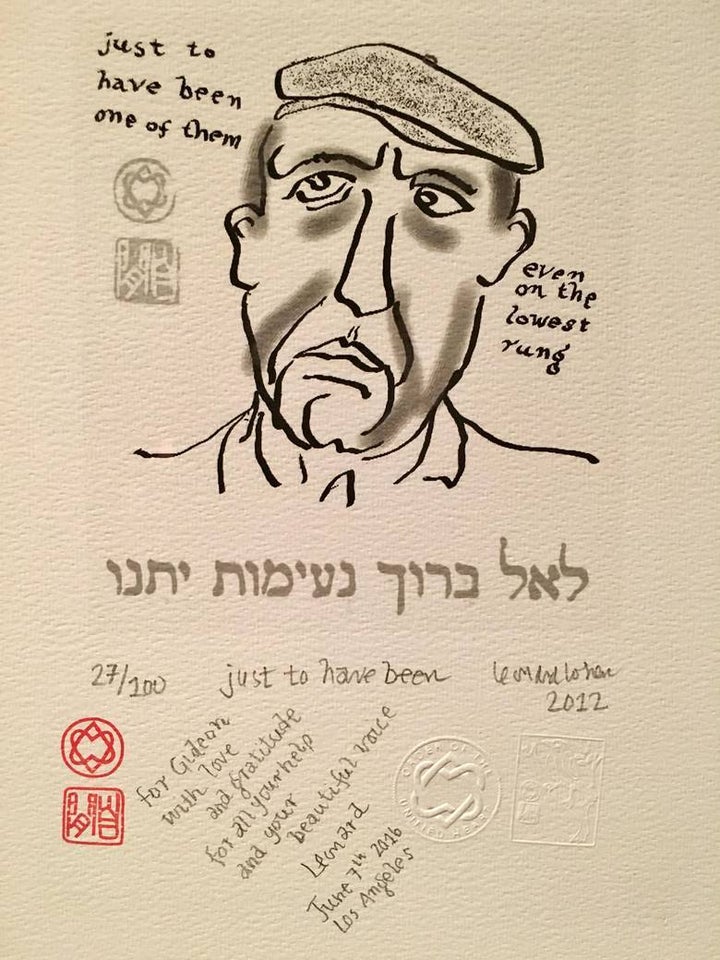 just to
have been
one of them
even
on the
lowest
rung
לאל ברוך נעימות יתנו
27/100
just to have been
Leonard Cohen
2012
for Gideon
with love
and gratitude
for all your help
and your
beautiful voice
Leonard
June 7th 2016
Los Angeles
ORDER OF THE
UNIFIED HEART